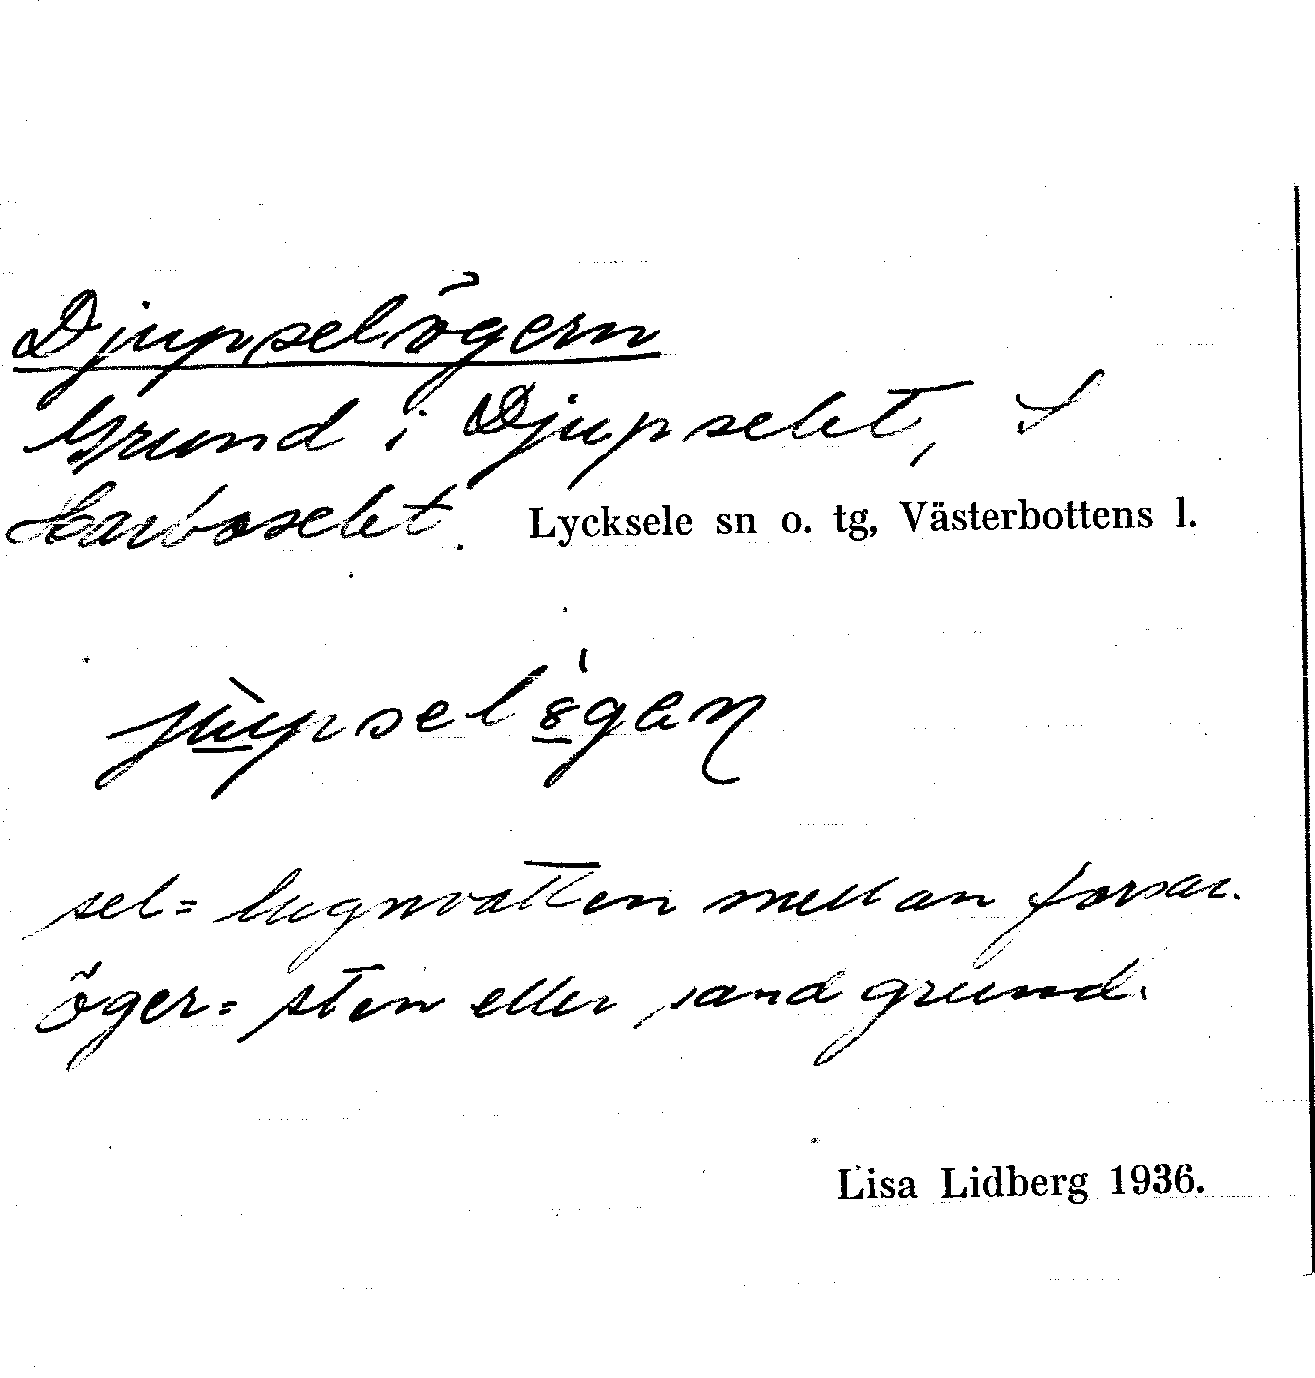 Djupselögern
Grund i Djupselet, S
Harboselet. Lycksele sn o. tg, Västerbottens l.
sel = lugnvatten mellan forsar.
öger = sten eller sandgrund.
Lisa Lidberg 1936.